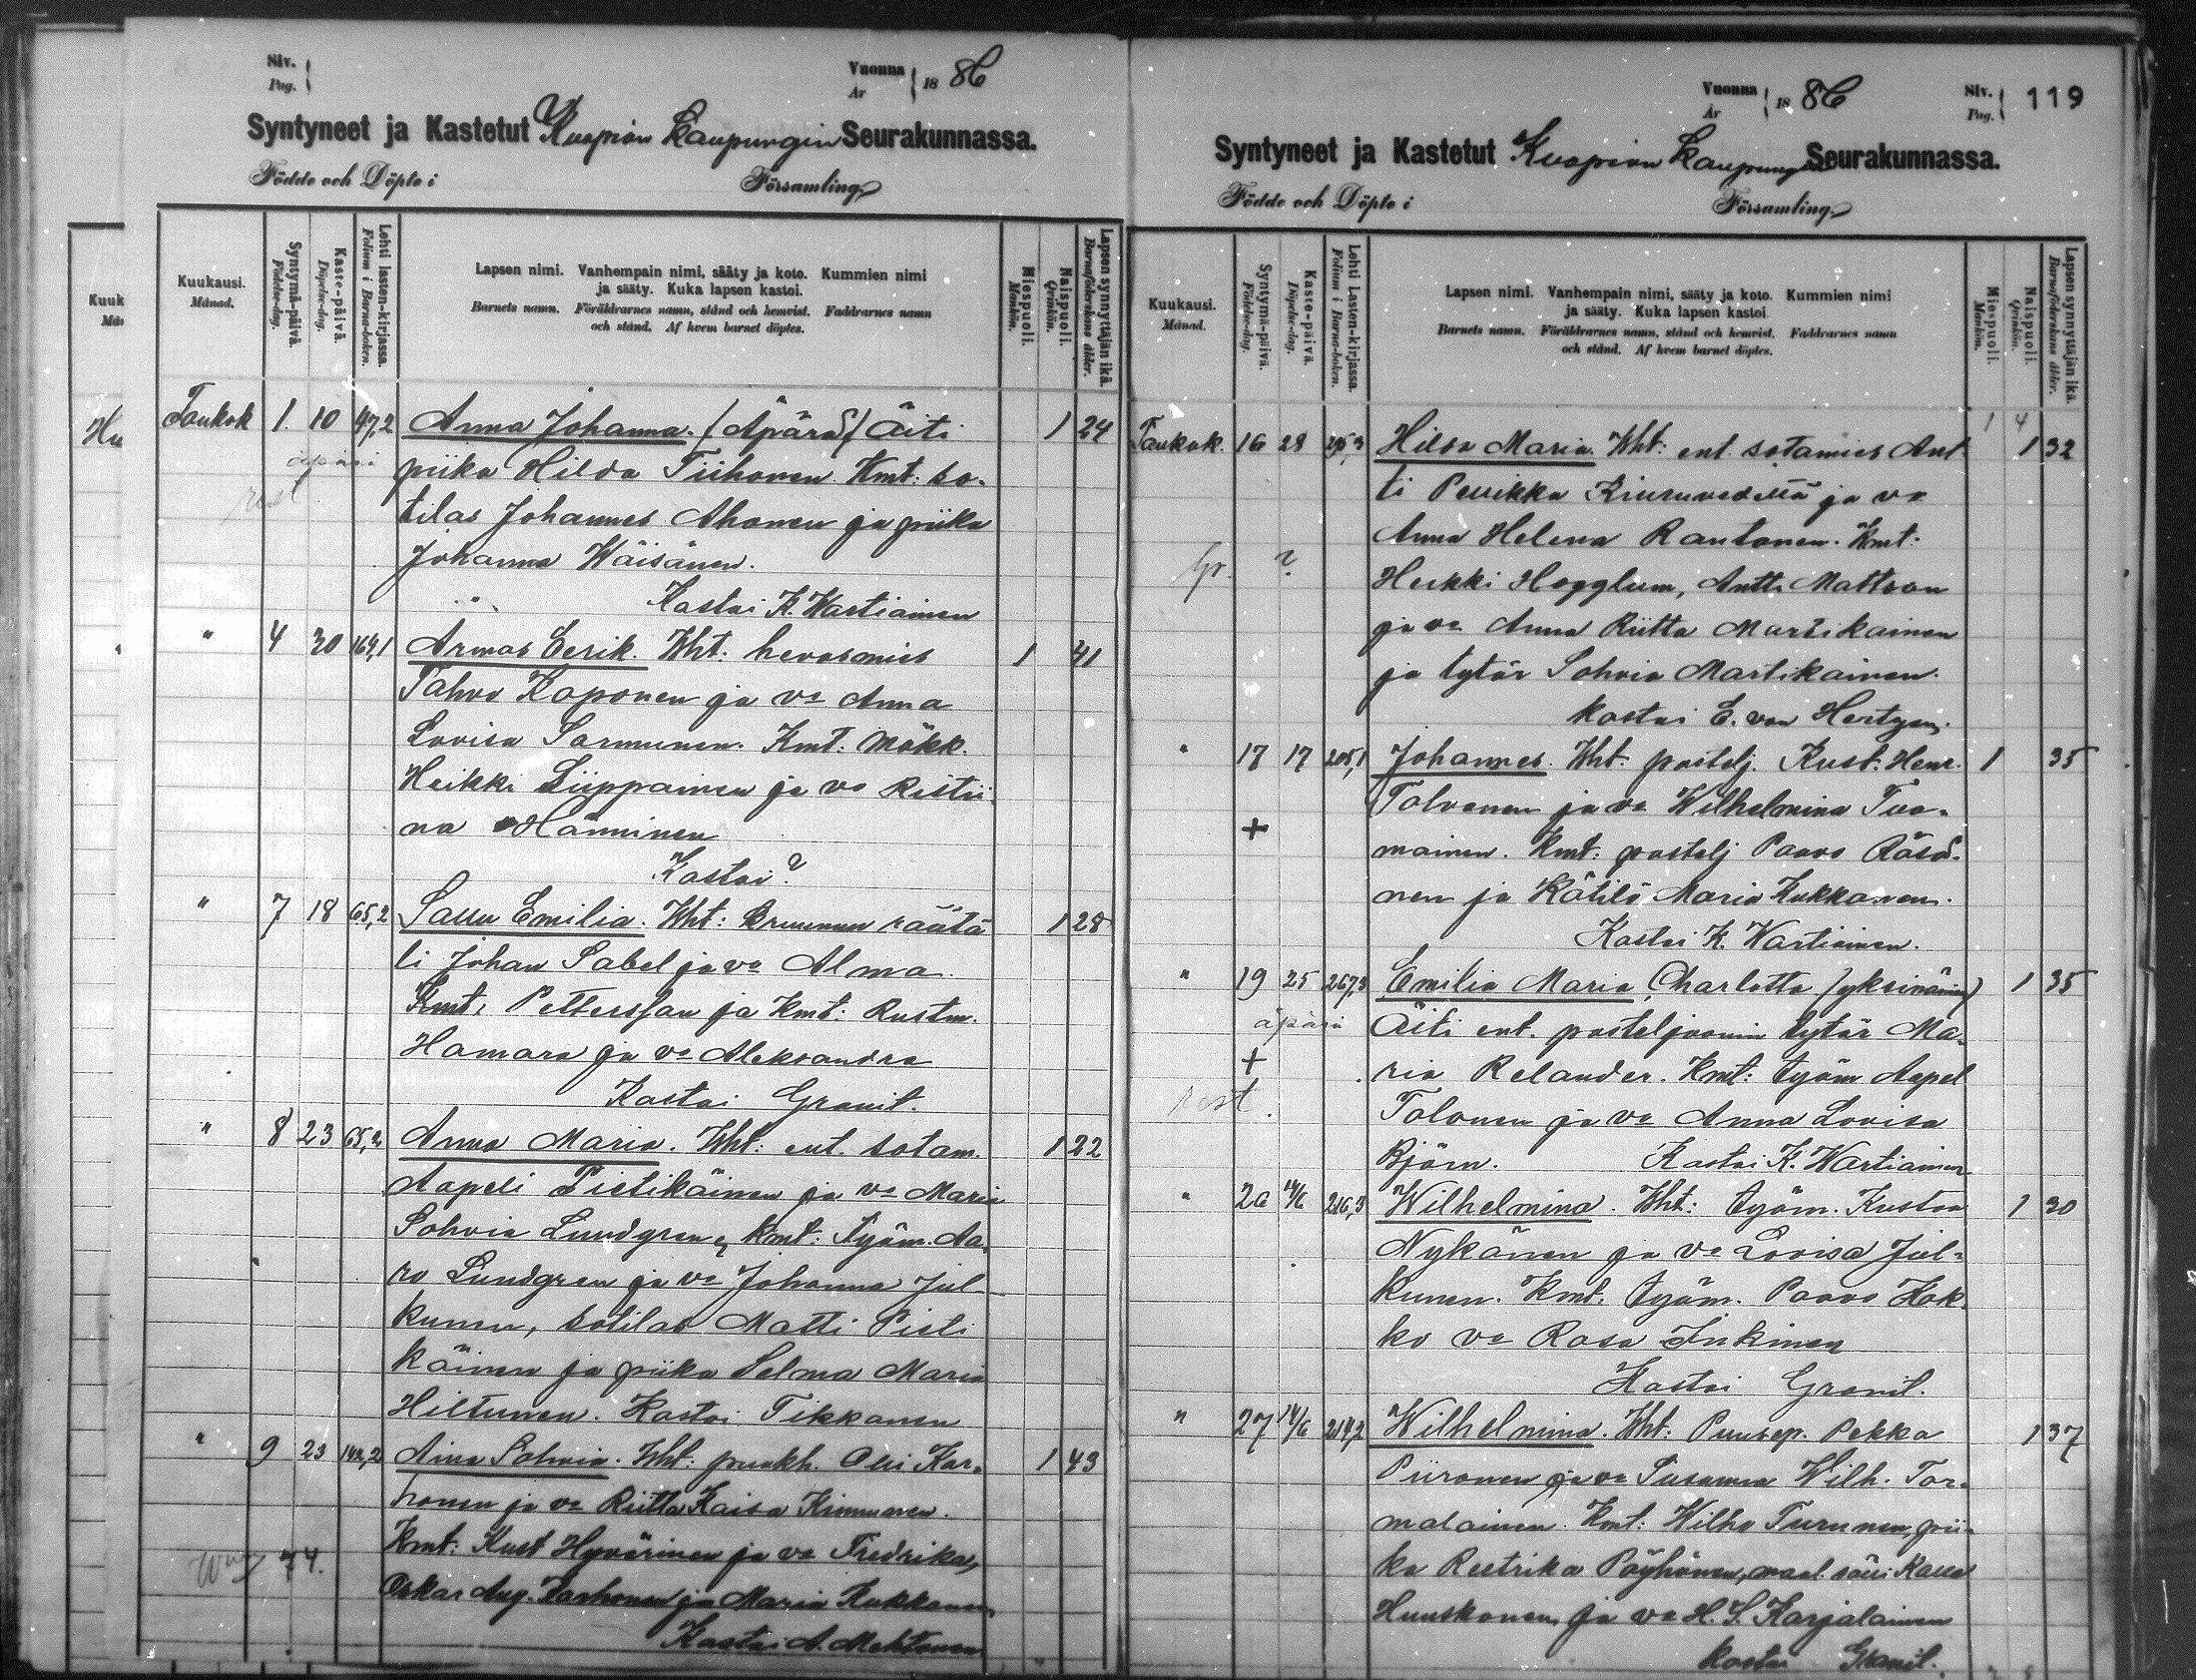 Siv.
Pag.
Vuonna
År
18 86
Syntyneet ja Kastetut Kuopion Kaupungin Seurakunnassa.
Födde och Döpte i Församling.
Kuukausi.
Månad.
Syntymä-päivä.
Födelse-dag.
Kaste-päivä.
Döpelse-dag.
Lehti lasten-kirjassa.
Folium i Barna-boken.
Lapsen nimi. Vanhempain nimi, sääty ja koto. Kummien nimi
ja sääty. Kuka lapsen kastoi.
Barnets namn. Föräldrarnes namn, stånd och hemvist. Faddrarnes namn
och stånd. Af hvem barnet döptes.
Miespuoli.
Mankön.
Naispuoli.
Qvinkön.
Lapsen synnyttäjän ikä.
Barnaföderskans ålder.
Kuuk
Hu
Toukok 1. 10 97,2 Anna Johanna. (Äpärä) Äiti 1 24
äpärä
piika Hilda Tiihonen. Kmt: so-
tilas Johannes Ahonen ja piika
Johanna Wäisänen.
Kastoi K. Wartiainen
" 4 30 164,1 Armas Eerik. Wht: hevosmies 1 41
Tahvo Koponen ja vo Anna
Lovisa Sormunen. Kmt: Mökk.
Heikki Liippainen ja vo Ristii
na Hänninen
Kastoi?
" 7 18 65,2 Saimi Emilia. Wht: räätä 1 28
li Johan Sabel ja vo Alma.
Kmt: Petterssan ja Kmt: Rustm.
Hamara ja vo Aleksandra
Kastoi Granit.
" 8 23 65,2 Anna Maria. Wht: ent. sotam. 1 22
Aapeli Pietikäinen ja vo Maria
Sohvia Lundgren, Kmt: Työm. Aa-
ro Lundgren ja vo Johanna Jul-
kunen, sotilas Matti Pieti
käinen ja piika Selma Maria
Hiltunen. Kastoi Tikkanen
" 9 23 142,2 Aina Sohvia. Wht: puukh. Olli Kor- 1 43
honen ja vo Riitta Kaisa Kinnunen.
Kmt: Kust Hyvärinen ja vo Fredrika,
74.
Oskar Aug. Korhonen ja Maria Kukkonen
Kastoi A. Mehtonen
Vuonna
År
18 86
Siv.
Pag.
119
Syntyneet ja Kastetut Kuopion Kaupungin Seurakunnassa.
Födde och Döpte i Församling.
Kuukausi.
Månad.
Syntymä-päivä.
Födelse-dag.
Kaste-päivä.
Döpelse-dag.
Lehti Lasten-kirjassa.
Folium i Barna-boken.
Lapsen nimi. Vanhempain nimi, sääty ja koto. Kummien nimi
ja sääty. Kuka lapsen kastoi.
Barnets namn. Föräldrarnes namn, stånd och hemvist. Faddrarnes namn
och stånd. Af hvem barnet döptes.
Miespuoli.
Mankön.
Naispuoli.
Qvinkön.
Lapsen synnyttäjän ikä.
Barnaföderskans ålder.
1 4
Toukok. 16 28 Hilda Maria. Wht: ent. sotamies Ant- 1 32
ti Pesikka Kiuruvedellä ja vo
Anna Helena Rautanen. Kmt:
?
Heikki Hogglum, Antti Mattson
ja vo Anna Riitta Martikainen
ja tytär Sohvia Martikainen.
kastoi E. von Hertzen.
" 17 17 205,1 Johannes. Wht: postelj. Kust. Henr. 1 35
Tolvanen ja vo Wilhelmina Tuo-
+
mainen. Kmt: postelj Paavo Räsä-
nen ja Kätilö Maria Kukkonen.
Kastoi K. Wartiainen.
" 19 25 267,3 Emilia Maria Charlotta (yksinäinen) 1 35
äpärä
Äiti ent. posteljoonin tytär Ma-
+
ria Relander. Kmt: työm Aapel
Tolonen ja vo Anna Lovisa
Björn. Kastoi K. Wartiainen
" 20 4/6 216,3 Wilhelmina. Wht: työm. Kustaa 1 30
Nykänen ja vo Lovisa Jul-
kunen. Kmt: työm. Paavo Kok-
ko vo Rosa Inkinen
Kastoi Granit.
" 27 14/6 214,2 Wilhelmina. Wht: Puusep. Pekka 1 37
Piironen ja vo Susanna Wilh. Tor-
malainen. Kmt: Wilho Turunen, pii-
ka Reetrika Pöyhönen, maal. sälli Kalle
Huuskonen ja vo H. S. Karjalainen
kastoi Granit.